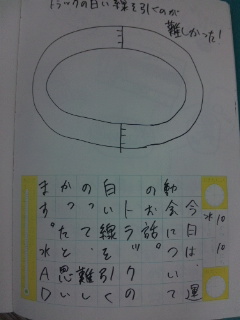 トラックの白い線を引くのが
難しかった!
10
10
水
今日は運
動会について
のお話
トラックの
白い線を引く
のって、難し
かったと思い
ます。水AD